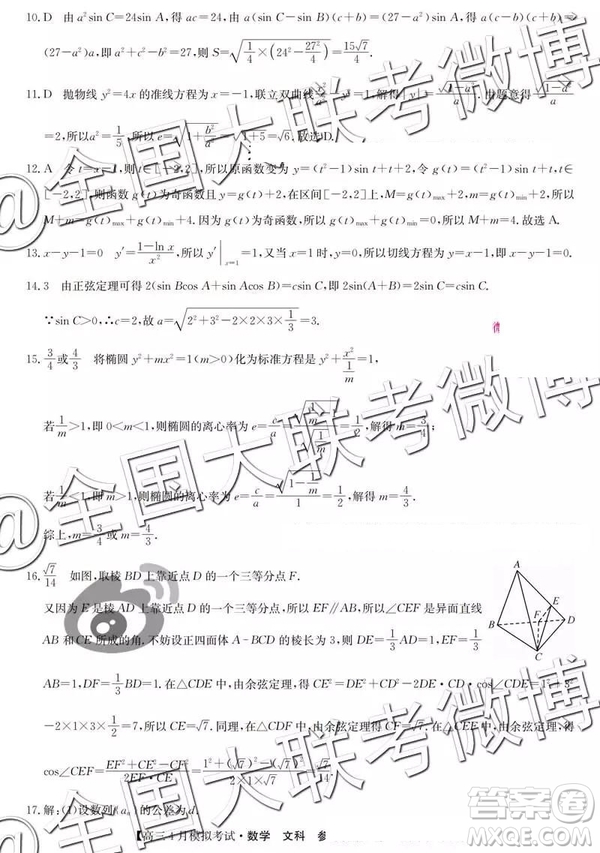 10. D 由 a²sin C=24sin A,得 ac=24,由 a(sin C-sin B)(c+b)=(27-a²)sin A,得 a(c-b)(c+b)=
(27-a²)a,即 a²+c²-b²=27,则 S=√(1/4×(24²-27²/4))=15√7/4.
11. D 抛物线 y²=4x 的准线方程为 x=-1,联立双曲线
=2,所以 a²=1/5,所以 e=√(1+b²/a²)=√(1+5)=√6.故选D.
12. A 令 t=x-1,则 t∈[-2,2],所以原函数变为 y=(t²-1)sin t+t+2,令 g(t)=(t²-1)sin t+t,t∈
[-2,2],则函数 g(t)为奇函数且 y=g(t)+2,在区间[-2,2]上,M=g(t)max+2,m=g(t)min+2,所以
M+m=g(t)max+g(t)min+4.因为 g(t)为奇函数,所以 g(t)max+g(t)min=0,所以 M+m=4.故选 A.
13. x-y-1=0 y′=(1-ln x)/x²,所以 y′|x=1=1,又当 x=1 时,y=0,所以切线方程为 x-y-1=0.
14. 3 由正弦定理可得 2(sin Bcos A+sin Acos B)=csin C,即 2sin(A+B)=csin C.
∵sin C>0,∴c=2,故 a=√(2²+3²-2×2×3×1/3)=3.
15. 3/4或4/3 将椭圆 y²+mx²=1(m>0)化为标准方程是 y²+x²/(1/m)=1,
若1/m>1,即 0<m<1,则椭圆的离心率为 e=c/a= =1/2,解得 m=3/4;
若 <1,即 m>1,则椭圆的离心率为 e=c/a=√(1-1/m)/1=1/2,解得 m=4/3.
综上,m=3/4或 m=4/3.
16. √7/14 如图,取棱 BD 上靠近点 D 的一个三等分点 F.
又因为 E 是棱 AD 上靠近点 D 的一个三等分点,所以 EF∥AB,所以∠CEF 是异面直线
AB 和 CE 所成的角.不妨设正四面体 A-BCD 的棱长为 3,则 DE=1/3AD=1,EF=1/3
AB=1,DF=1/3BD=1.在△CDE 中,由余弦定理,得 CE²=DE²+CD²-2DE·CD·cos∠CDE=1²+3²
-2×1×3×1/2=7,所以 CE=√7.同理,在△CDF 中,CF=√7.在△CEF 中,由余弦定理,得
cos∠CEF=(EF²+CE²-CF²)/(2EF·CE)=(1²+(√7)²-(√7)²)/(2×1×√7)=√7/14.
A
B
C
D
E
F
17. 解:(1)设数列{an}的公差为d,
【高三4月模拟考试·数学 文科 参
@全国大联考微博
@全国大联考微博
答案圈